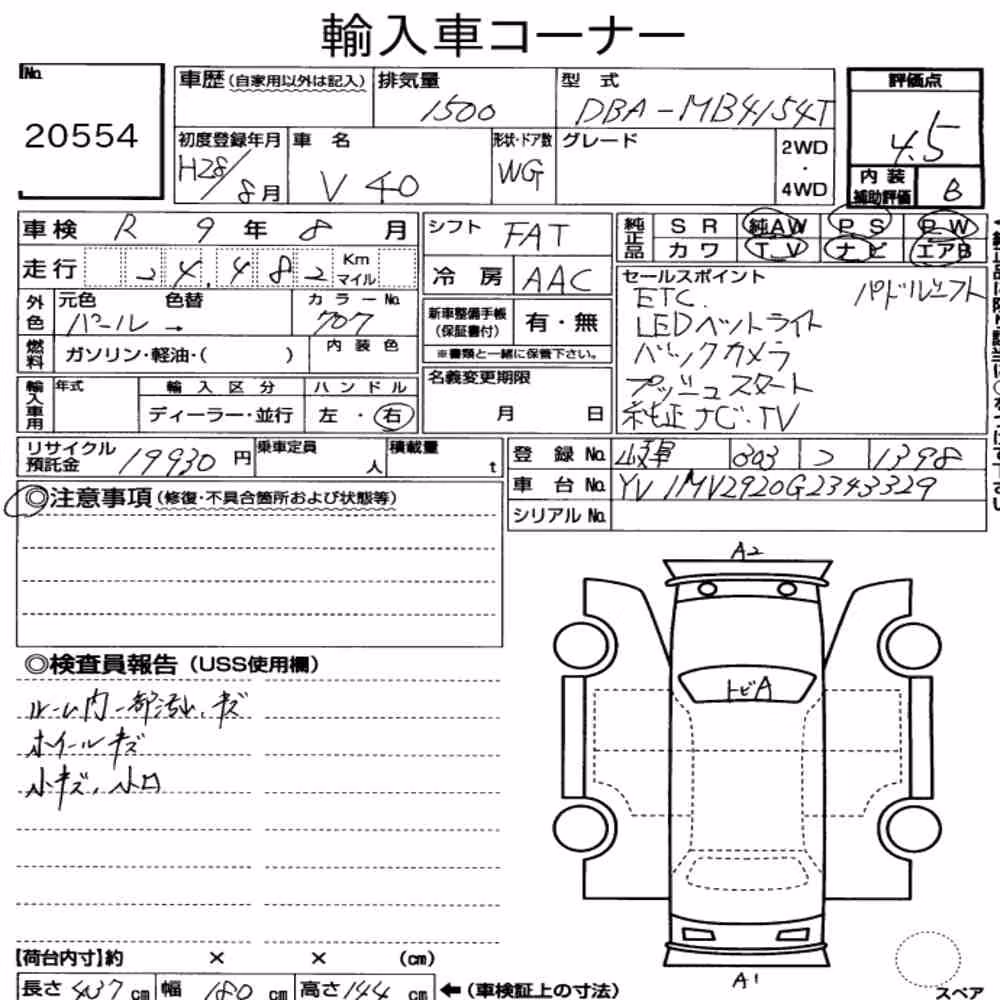 輸入車コーナー
No.
20554
車歴 (自家用以外は記入)
排気量
1500
型式
DBA-MB4154T
評価点
4.5
初度登録年月
H28/8月
車名
V40
形状・ドア数
WG
グレード
2WD
・
4WD
内装
補助評価
B
車検 R 9年 8月
シフト
FAT
純正品
SR 純AW PS PW
カワ TV ナビ エアB
走行 24,482 Km
マイル
冷房
AAC
セールスポイント
ETC. パドルシフト
LEDヘットライト
バックカメラ
プッシュスタート
純正ナビ・TV
外色
元色 色替
パール →
カラーNo.
707
新車整備手帳
(保証書付)
有・無
※書類と一緒に保管下さい。
燃料
ガソリン・軽油・( )
内装色
輸入車用
年式
輸入区分
ディーラー・並行
ハンドル
左・右
名義変更期限
月 日
リサイクル
預託金
19930円
乗車定員
人
積載量
t
登録No. 岐阜 303 フ 1398
車台No. YV1MV2920G2343329
シリアルNo.
◎注意事項 (修復・不具合箇所および状態等)
◎検査員報告 (USS使用欄)
ルーム内一部汚れ、キズ
ホイールキズ
小キズ、小凹
A2
トビA
A1
スペア
【荷台内寸】約 × × (cm)
長さ 437 cm 幅 180 cm 高さ 144 cm ←(車検証上の寸法)